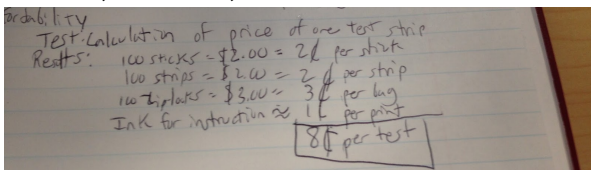 ordability
Test: Calculation of price of one test strip
Results: 100 sticks = $2.00 = 2¢ per stick
100 strips = $2.00 = 2¢ per strip
100 ziplocks = $3.00 = 3¢ per bag
Ink for instruction ≈ 1¢ per print
8¢ per test